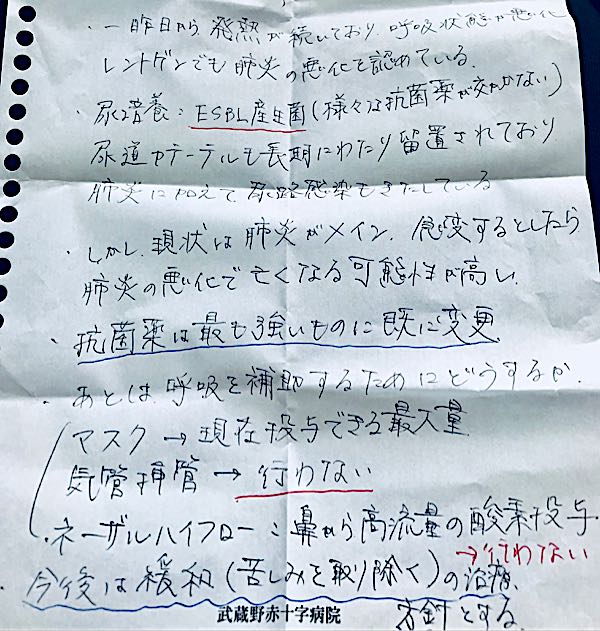 ・一昨日から発熱が続いており、呼吸状態が悪化
レントゲンでも肺炎の悪化を認めている.
・尿培養：ESBL産生菌(様々な抗菌薬が効かない)
尿道カテーテルも長期にわたり留置されており
肺炎に加えて尿路感染もきたしている
・しかし、現状は肺炎がメイン、急変するとしたら
肺炎の悪化で亡くなる可能性が高い.
・抗菌薬は最も強いものに既に変更
・あとは、呼吸を補助するためにどうするか.
マスク→現在投与できる最大量
気管挿管→行わない
・ネーザルハイフロー：鼻から高流量の酸素投与
→行わない
・今後は緩和(苦しみを取り除く)の治療
方針とする.
武蔵野赤十字病院